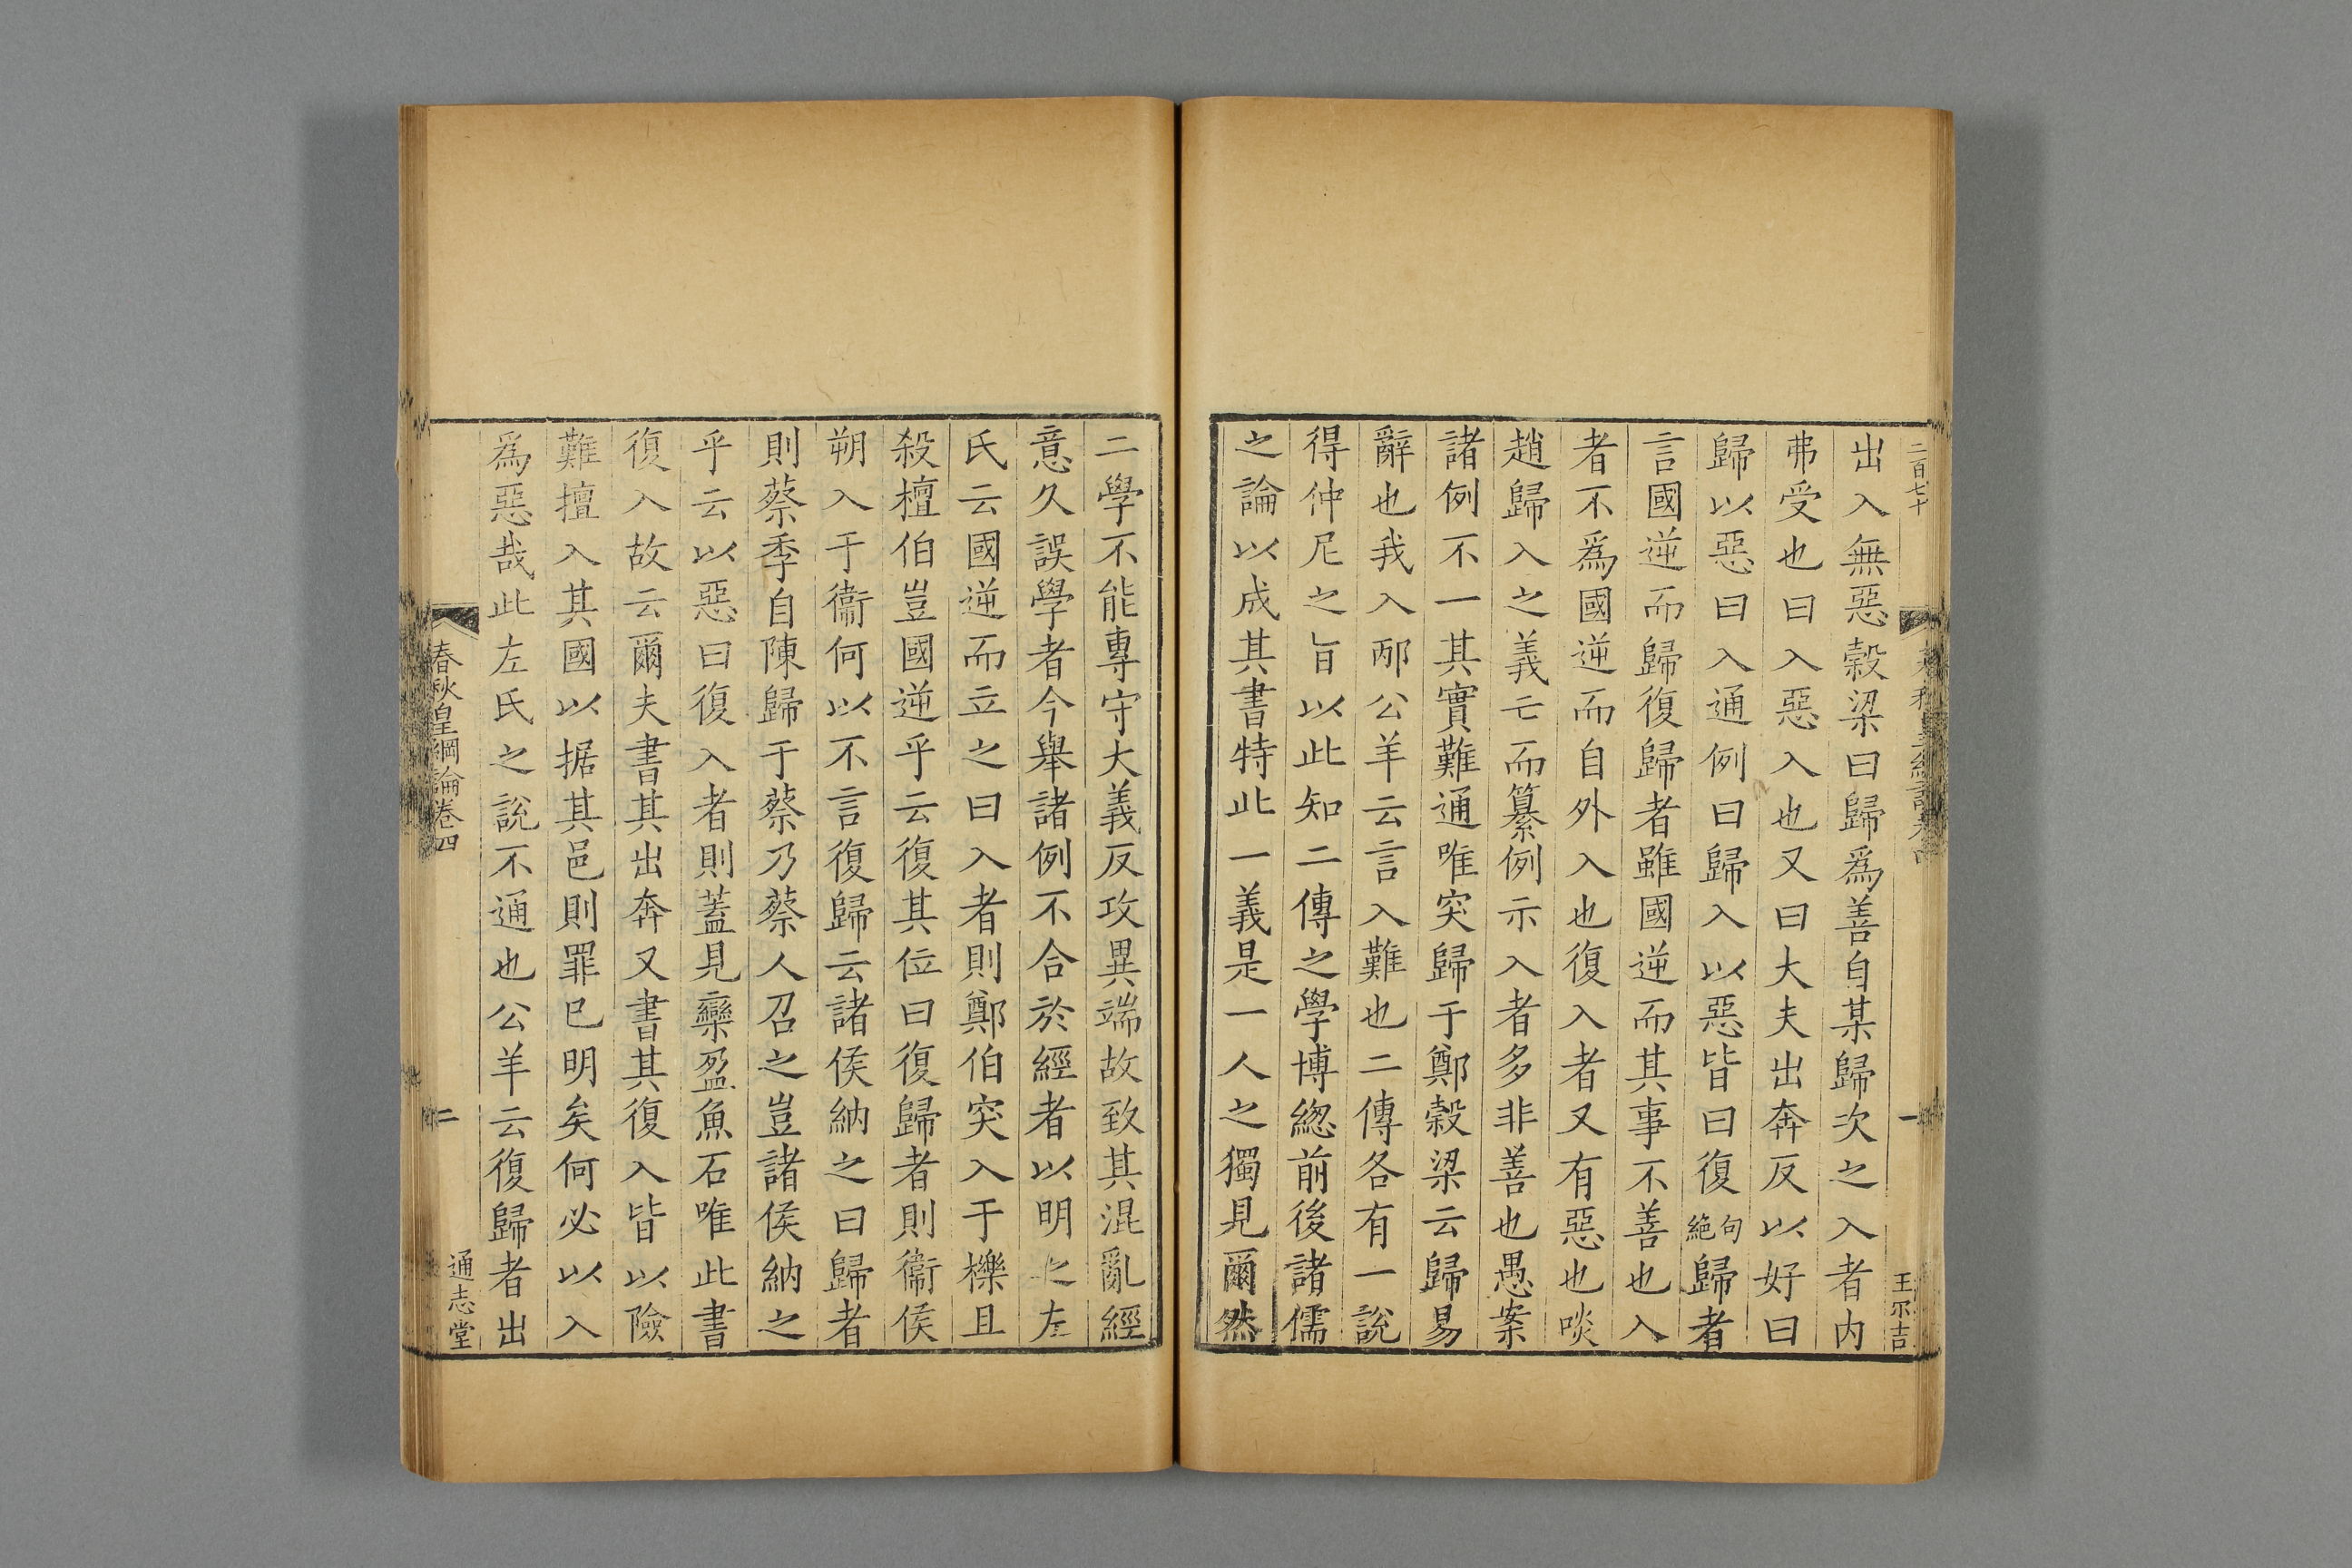 二百七十
王尔吉
一
出入無惡穀梁曰歸爲善自某歸次之入者内
弗受也曰入惡入也又曰大夫出奔反以好曰
歸以惡曰入通例曰歸入以惡皆曰復絶句歸者
言國逆而歸復歸者雖國逆而其事不善也入
者不爲國逆而自外入也復入者又有惡也啖
趙歸入之義亡而纂例示入者多非善也愚案
諸例不一其實難通唯突歸于鄭穀梁云歸易
辭也我入邴公羊云言入難也二傳各有一說
得仲尼之旨以此知二傳之學博緫前後諸儒
之論以成其書特此一義是一人之獨見爾然
二學不能專守大義反攻異端故致其混亂經
意久誤學者今舉諸例不合於經者以明之左
氏云國逆而立之曰入者則鄭伯突入于櫟且
殺檀伯豈國逆乎云復其位曰復歸者則衞侯
朔入于衞何以不言復歸云諸侯納之曰歸者
則蔡季自陳歸于蔡乃蔡人召之豈諸侯納之
乎云以惡曰復入者則蓋見欒盈魚石唯此書
復入故云爾夫書其出奔又書其復入皆以險
難擅入其國以据其邑則罪已明矣何必以入
爲惡哉此左氏之說不通也公羊云復歸者出
春秋皇綱論卷四
二
通志堂